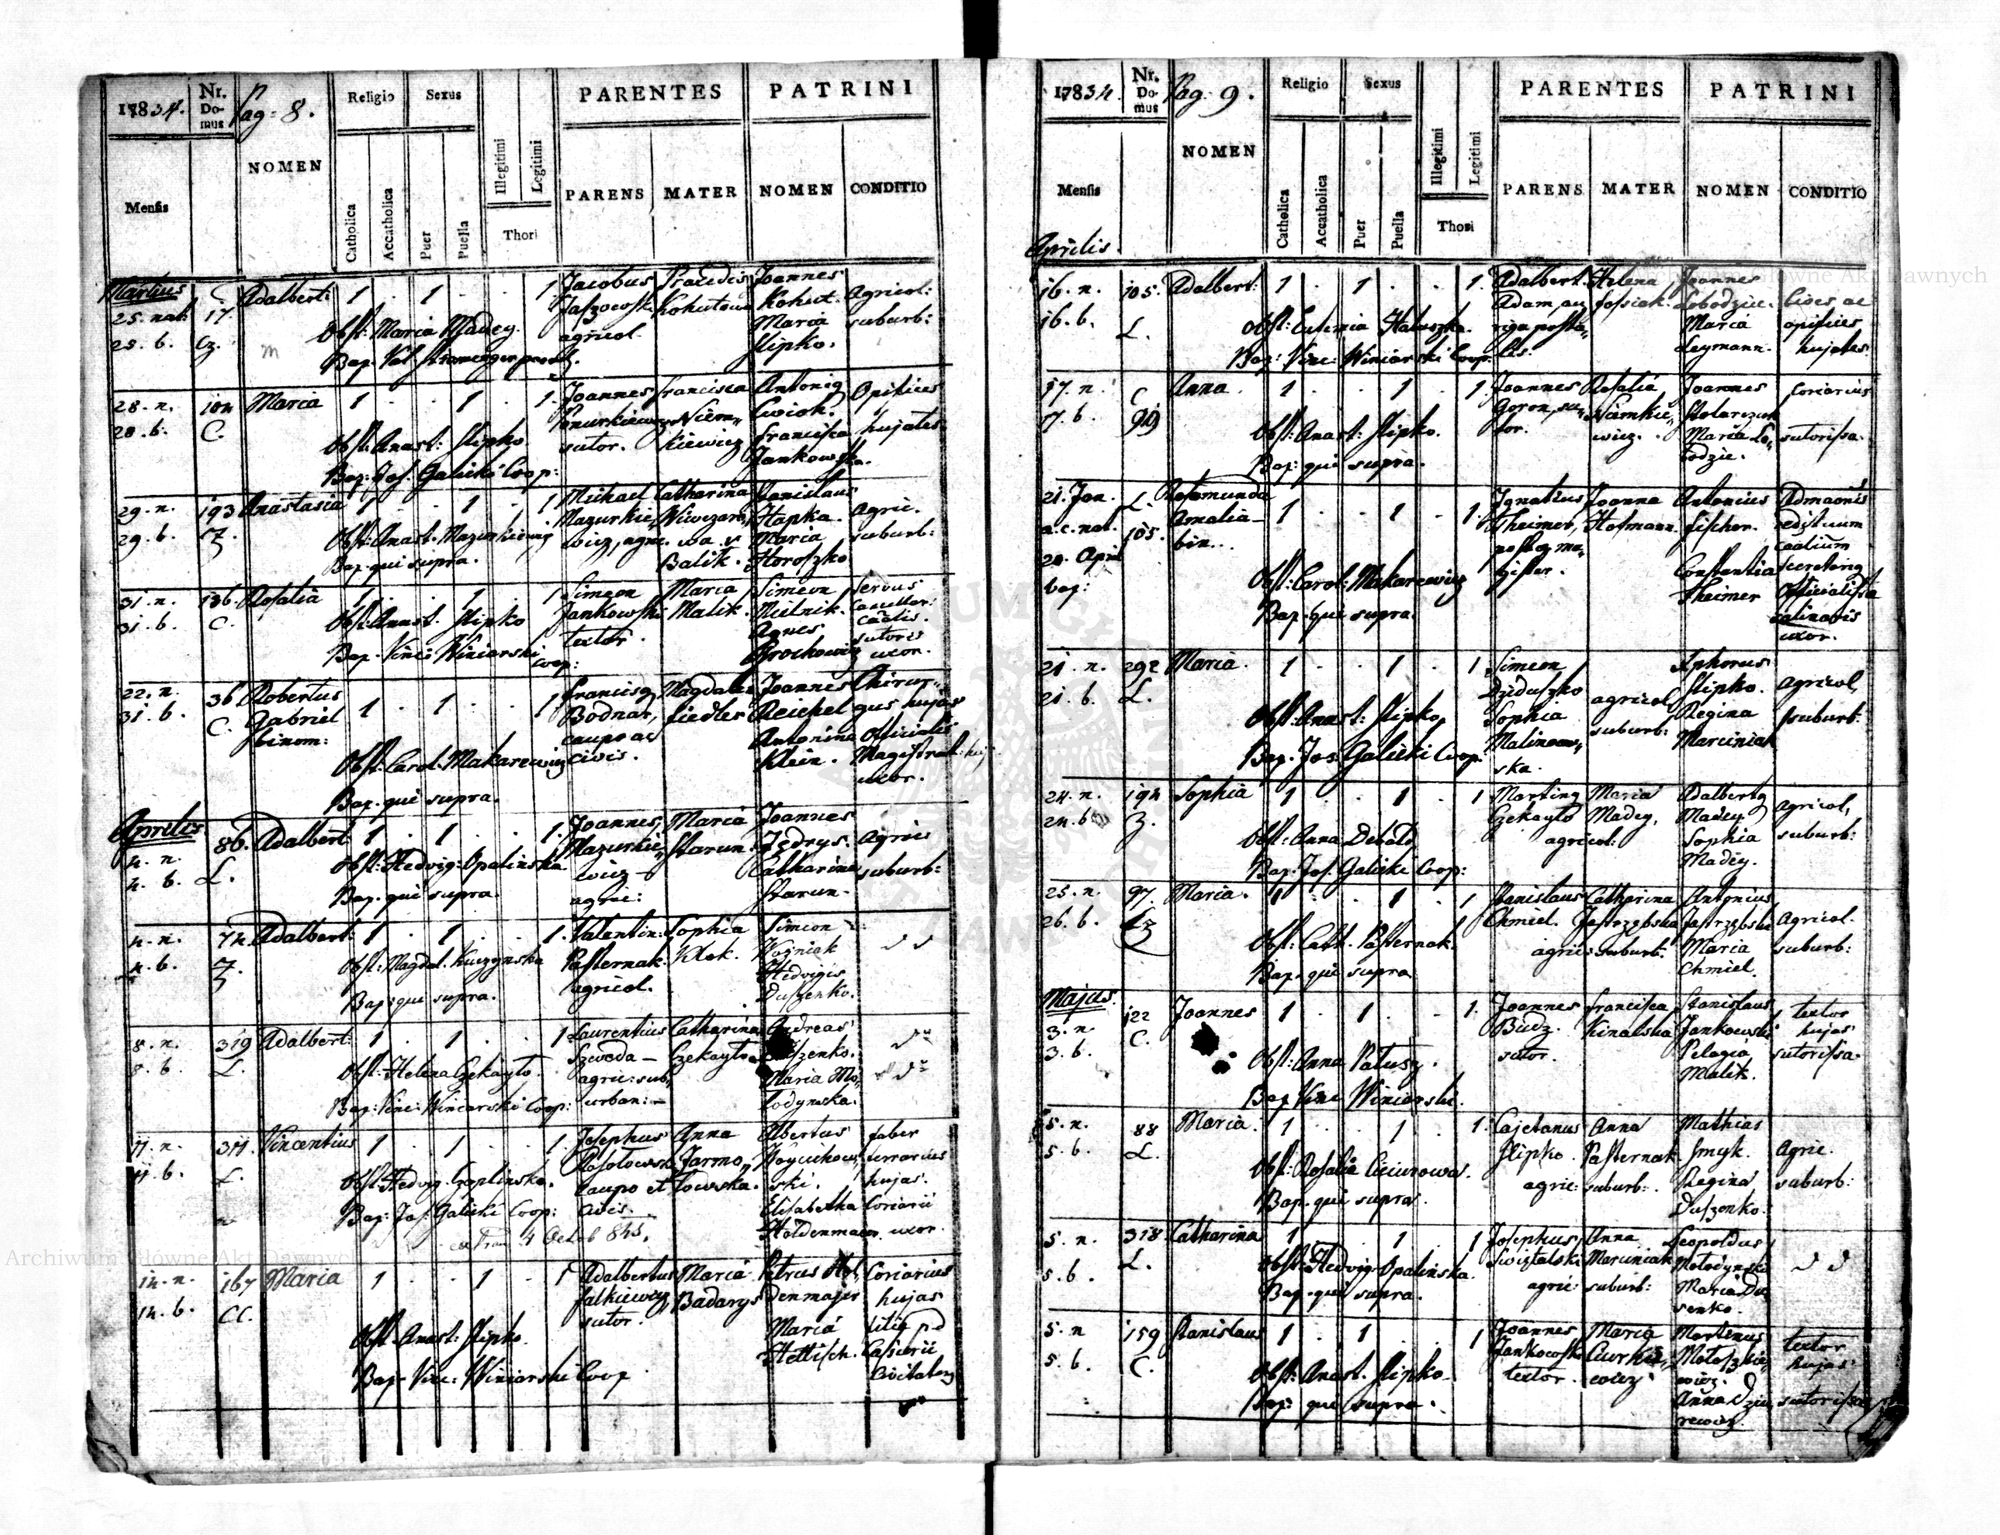 1834.
Nr. Domus
Pag. 8.
Religio
Sexus
PARENTES
PATRINI
Mensis
NOMEN
Catholica
Accatholica
Puer
Puella
Illegitimi
Legitimi
Thori
PARENS
MATER
NOMEN
CONDITIO
Martius
25. nat: 17. Adalbert: 1 . 1 . . 1 Jacobus Praxedis Joannes
25. b. Cz. Kohutowa Kohut. Agricol:
Obst: Maria Madey. agricol. Maria suburb:
Bap. Val. Slipko.
28. n. 104 Maria 1 . . 1 . 1. Joannes Francisca Antonius Opifices
28. b. C. Cwiok. hujates
Obst: Anast: Slipko sutor. kiewicz Francisca
Bap: Jos. Galicki Coop: Jankowska.
29. n. 193 Anastasia 1 . . 1 . 1 Michael Catharina Stanislaus
29. b. Z. Mazurkie- Hapka. Agric.
Obst: Anast: wicz, agric. Maria suburb:
Bap. qui supra. Balik. Horoszko
31. n. 136. Rosalia 1 . . 1 . 1 Simeon Maria Simeon servus
31. b. C. Jankowski Malik. Mielnik.
Obst: Anast. Slipko textor. Agnes sutoris
Bap. Vinc: Winiarski Coop: uxor.
22. n. 36 Robertus 1 . 1 . . 1 Francisq Magdale: Joannes Chirur-
31. b. C. Gabriel Bodnar, Fiedler Reichel gus hujas
binom: caupo ac Antonina Officialis
Obst: Carol. Makarewicz civis. Klein. Magistrat: huj.
Bap. qui supra. uxor.
Aprilis
4. n. 86. Adalbert 1 . 1 . . 1. Joannes Maria Joannes
4. b. L. Mazurkie- Starun. Jędrys. Agric
Obst: Hedvig: Opalinska wicz - Catharina suburb:
Bap. qui supra. agric: Starun.
4. n. 74. Adalbert: 1 . 1 . . 1. Valentin: Sophia Simeon
4. b. Z. Pasternak. Klok. Wozniak
Obst: Magdal. Kuczynska agricol. Hedviges
Bap. qui supra. Duszenko.
8. n. 319 Adalbert: 1 . 1 . . 1 Laurentius Catharina Andreas
8. b. L. Szweda - Czekayto Duszenko.
Obst: Helena Czekayto. agric: sub- Maria Mo-
Bap: Vinc: Winiarski Coop: urban: - todynska.
11. n. 311. Vincentius 1 . 1 . . 1 Josephus Anna Albertus Faber
11. b. L. Jarmo- ferrarius
Obst: Hedvig. caupo et towska. ski. hujas.
Bap: Jos. Galicki Coop: civis. Elisabetha Coriarii
Holdenmaer. uxor.
14. n. 167 Maria 1 . . 1 . 1 Adalbertus Maria Petrus Hol- Coriarius
14. b. CC. Falkiewicz, Badarys denmajer hujas
sutor. Maria filia pd
Obst. Anast: Slipko. Hettisch. Casierii
Bap. Vinc: Winiarski Coop. Civitatens
1834.
Nr. Domus
Pag. 9.
Religio
Sexus
PARENTES
PATRINI
Mensis
NOMEN
Catholica
Accatholica
Puer
Puella
Illegitimi
Legitimi
Thori
PARENS
MATER
NOMEN
CONDITIO
Aprilis.
16. n. 105. Adalbert: 1 . 1 . . 1. Adalbert. Helena Joannes
16. b. L. Adam, au- Josiak. Lobodzic. Cives ac
Obst: Eufemia Haluszka. riga posta- Maria opifices
Bap: Vinc: Winiarski Coop. lis. Leymann. hujates.
17. n. C Anna. 1 . . 1 . 1. Joannes Rosalia Joannes Coriarius
17. b. 99 Goron, su- Stolarczuk
Obst: Anast: Slipko. tor. wicz. Maria Lo- sutorissa.
Bap: qui supra. bodzic.
21. Jan. L. Rosamunda 1 . . 1 . 1. Ignatius Joanna Antonius Admaonis
a.c. nat. 105. Amalia - Theimer, Hofmann. Fischer.
20. April bin. postæ ma- caalium
bap: Obst: Carol: Makarewicz gister. Constantia secretariq
Bap. qui supra. Theimer Officialista
salinaris
uxor.
21. n. 292 Maria. 1 . . 1 . 1, Simeon Aphorus
21. b. L. Dziduszko agricol Slipko. Agricol,
Obst: Anast: Slipko, Sophia suburb: Regina suburb:
Bap. Jos. Galicki Coop. Malinow- Marciniak
ska.
24. n. 194 Sophia 1 . . 1 . 1 Martinq Maria Adalbertq Agricol,
24. b. Z. Czekayto Madey, Madey. suburb:
Obst: Anna Debold agricol: Sophia
Bap: Jos. Galicki Coop: Madey.
25. n. 97. Maria. 1 . . 1 . 1 Stanislaus Catharina Antonius
26. b. Cz Chmiel. Jastrzębska Jastrzębski Agricol.
Obst: Cath. Pasternak. agric: suburb: Maria suburb:
Bap. qui supra Chmiel.
Majus.
3. n. 122 Joannes 1 . 1 . . 1. Joannes Francisca Stanislaus textor
3. b. C. Budz. Kinalska Jankowski hujas
Obst: Anna Patusz. sutor. Pelagia sutorissa.
Bap. Vinc Winiarski. Malik.
5. n. 88 Maria. 1 . . 1 . 1. Cajetanus Anna Mathias
5. b. L. Slipko. Pasternak Smyk. Agric.
Obst: Rosalia Ciciurowa. agric: suburb: Regina suburb:
Bap. qui supra. Duszenko.
5. n. 318. Catharina 1 . . 1 . 1 Josephus Anna Leopoldus
5. b. L. Swiztalski Marciniak Motodynski
Obst: Hedvig. Opalinska. agric: suburb: Maria Du-
Bap. qui supra. senko.
5. n 159 Stanislaus 1 . 1 . . 1 Joannes Maria Martinus textor
5. b. C. Jankowski hujas
Obst: Anast. Slipko. textor. wicz wicz.
Bap: qui supra. Anna sutorissa
Archiwum Główne Akt Dawnych
Archiwum Główne Akt Dawnych